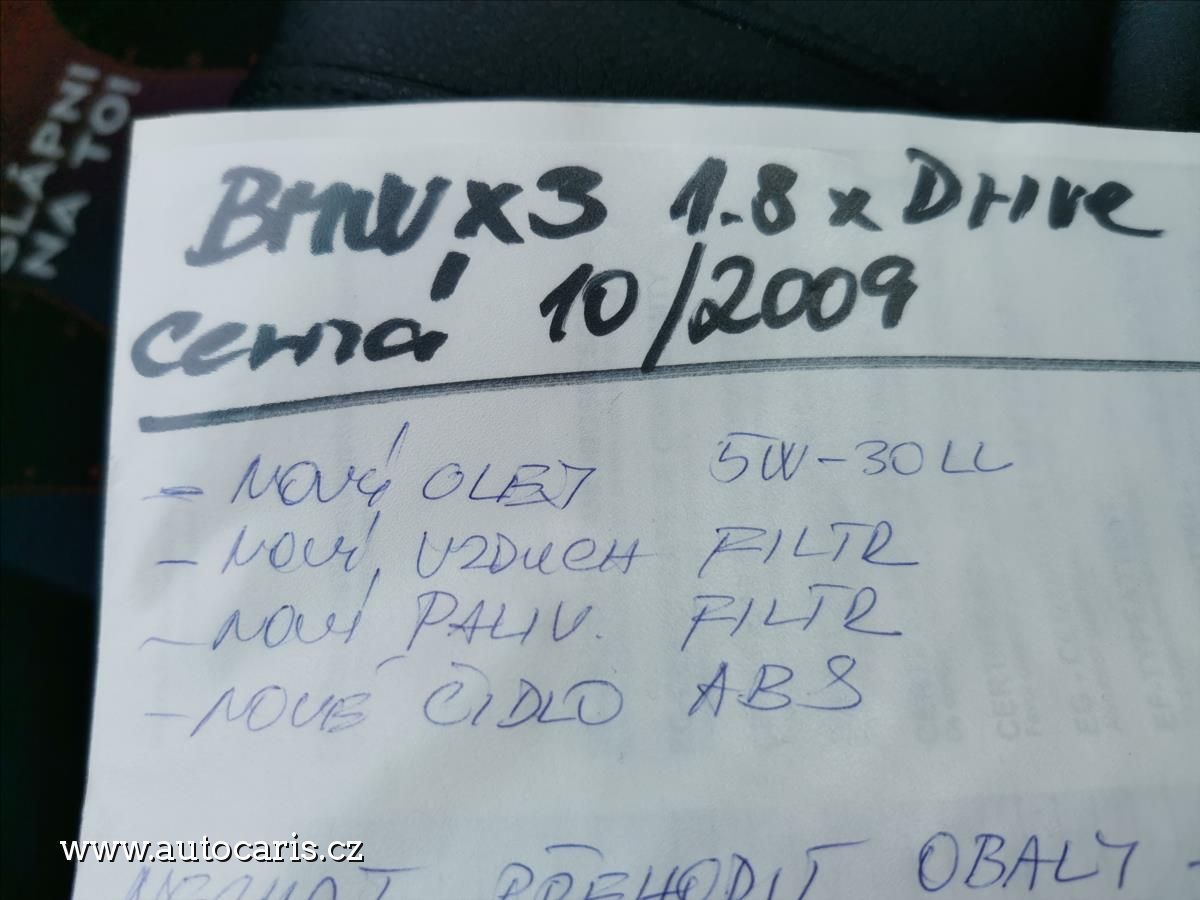 ŠLÁPNI
NA TO!
BMW X3 1.8 x Drive
Černá 10/2009
- NOVÝ OLEJ 5W-30 LL
- NOVÝ VZDUCH FILTR
- NOVÝ PALIV. FILTR
- NOVÉ ČIDLO ABS
NECHAT PŘEHODIT OBALY -
www.autocaris.cz